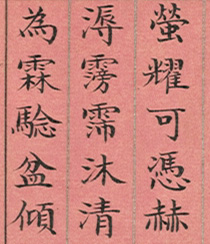 螢耀可憑赫
溽霶霈沐清
為霖騐盆傾